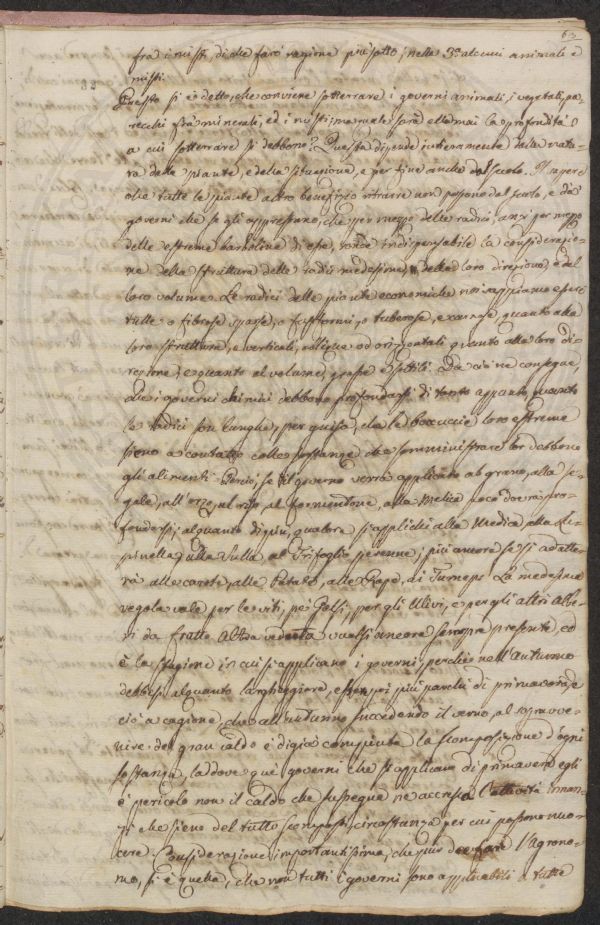 63
fra i misti, di che farò ragione più sotto, nella 3ª alcuni animali e
misti.
Questo si è detto, che conviene sotterrare i governi animali, i vegetali, pa-
recchi fra minerali, ed i misti; ma quale sarà ella mai la profondità
a cui sotterrare si debbono? Questa dipende interamente dalla natu-
ra delle piante, e della situazione, e per fine anche dal suolo. Il sapere
che tutte le piante altro benefizio ritrarre non possono dal suolo, e da
governi che se gli appressano, che per mezzo delle radici, anzi per mezzo
delle estreme barboline di esse, rende indispensabile la considerazio-
ne della struttura delle radici medesime, della loro direzione, e del
loro volume. Le radici delle piante economiche noi sappiamo essere
tutte o fibrose sparse, o fusiformi, o tuberose, e ramose quanto alla
loro struttura, e verticali, oblique od orizontali quanto alla loro di-
rezione, e quanto al volume, grosse e sottili. Da ciò ne consegue,
che i governi debbono profondarsi di tanto appunto, quanto
le radici son lunghe, per guisa, che le boccuccie loro estreme
sieno a contatto colle sostanze che somministrare lor debbono
gli alimenti. Perciò, se il governo verrà applicato al grano, alla se-
gale, all'orzo, al riso, al formentone, alla Melica poco dovrà pro-
fondersi; alquanto di più, qualora si applichi alla Medica, alla Lu-
pinella, alla Sulla, al Trifoglio perenne; più ancora se si adatte-
rà alle carote, alle Patate, alle Rape, ai Turneps. La medesima
regola vale per le viti, pei Gelsi, per gli Ulivi, e per gli altri Albe-
ri da frutto. Altra veduta vuolsi ancora sempre presente, ed
è la stagione in cui si applicano i governi, perchè nell'Autunno
debbesi alquanto largheggiare, esser poi più parchi di primavera, e
ciò a cagione, che all'autunno succedendo il verno, al soprave-
nire del gran caldo è digià compiuta la scomposizione d'ogni
sostanza, laddove que' governi che si applicano di primavera egli
è pericolo non il caldo che sussegue ne accresca l'attività innan-
zi che sieno del tutto scomposti, circostanza per cui possono nuo-
cere. Considerazione importantissima, che può dee fare l'Agrono-
mo, si è quella, che non tutti i governi sono applicabili a tutte